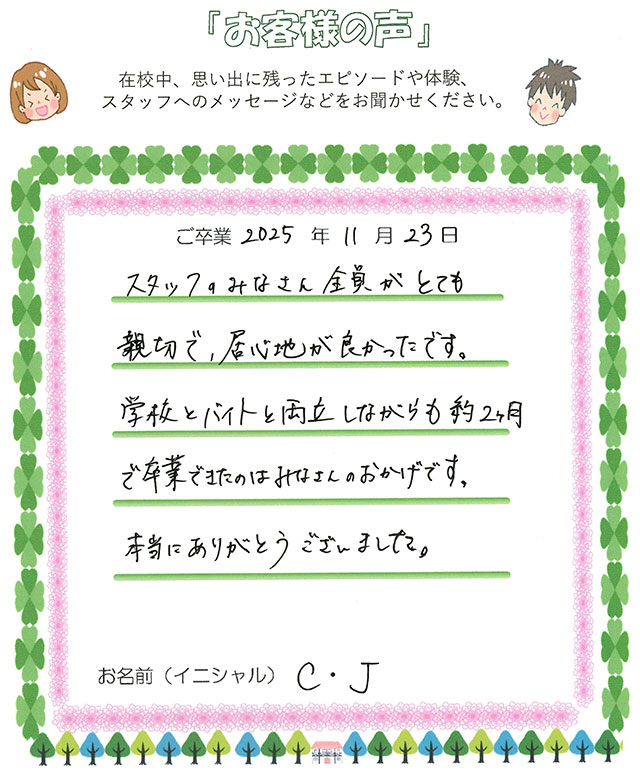 「お客様の声」
在校中、思い出に残ったエピソードや体験、
スタッフへのメッセージなどをお聞かせください。
ご卒業 2025 年 11 月 23 日
スタッフのみなさん全員がとても
親切で、居心地が良かったです。
学校とバイトと両立しながらも約2ヶ月
で卒業できたのはみなさんのおかげです。
本当にありがとうございました。
お名前(イニシャル) C・J